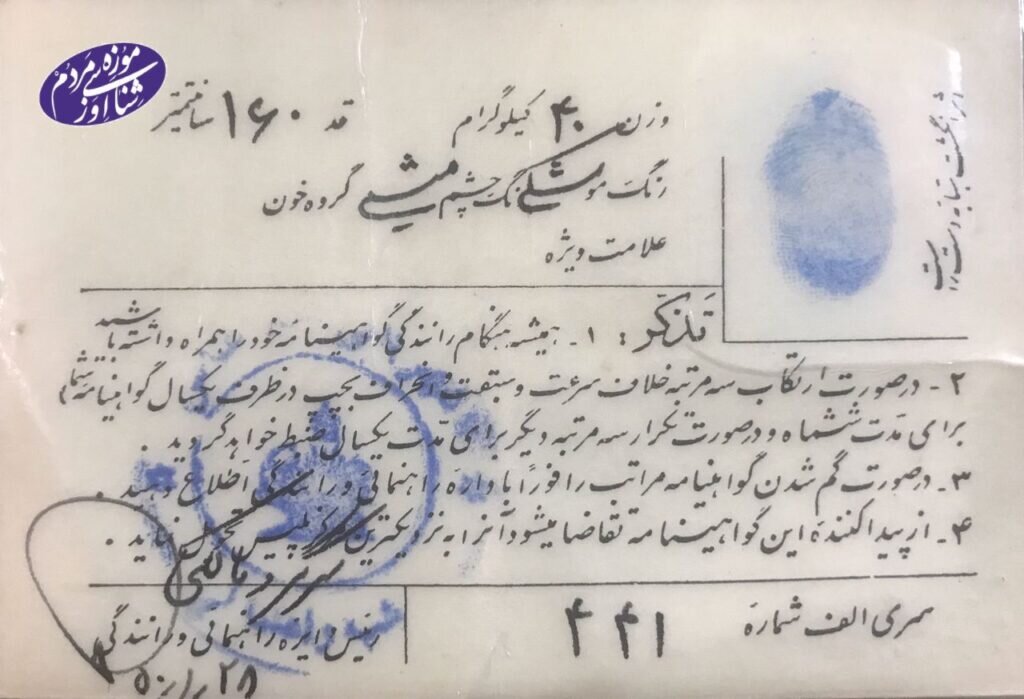 موزه‌ی مردم‌شناسی اوز
وزن ۴۰ کیلوگرام قد ۱۶۰ سانتیمتر
رنگ مو مشکی رنگ چشم میشی گروه خون
علامت ویژه
اثر انگشت سبابه دست راست
تذکر: ۱ـ همیشه هنگام رانندگی گواهینامه خود را همراه داشته باشید
۲ـ در صورت ارتکاب سه مرتبه خلاف سرعت و سبقت و انحراف بچپ در ظرف یکسال گواهینامه شما
برای مدت ششماه و در صورت تکرار سه مرتبه دیگر برای مدت یکسال ضبط خواهد گردید .
۳ـ در صورت گم شدن گواهینامه مراتب را فوراً با داره راهنمائی و رانندگی اطلاع دهید .
۴ـ از پیدا کننده این گواهینامه تقاضا میشود آنرا به نزدیکترین مرکز پلیس تحویل نماید .
سری الف شماره ۴۴۱
رئیس دایره راهنمائی و رانندگی